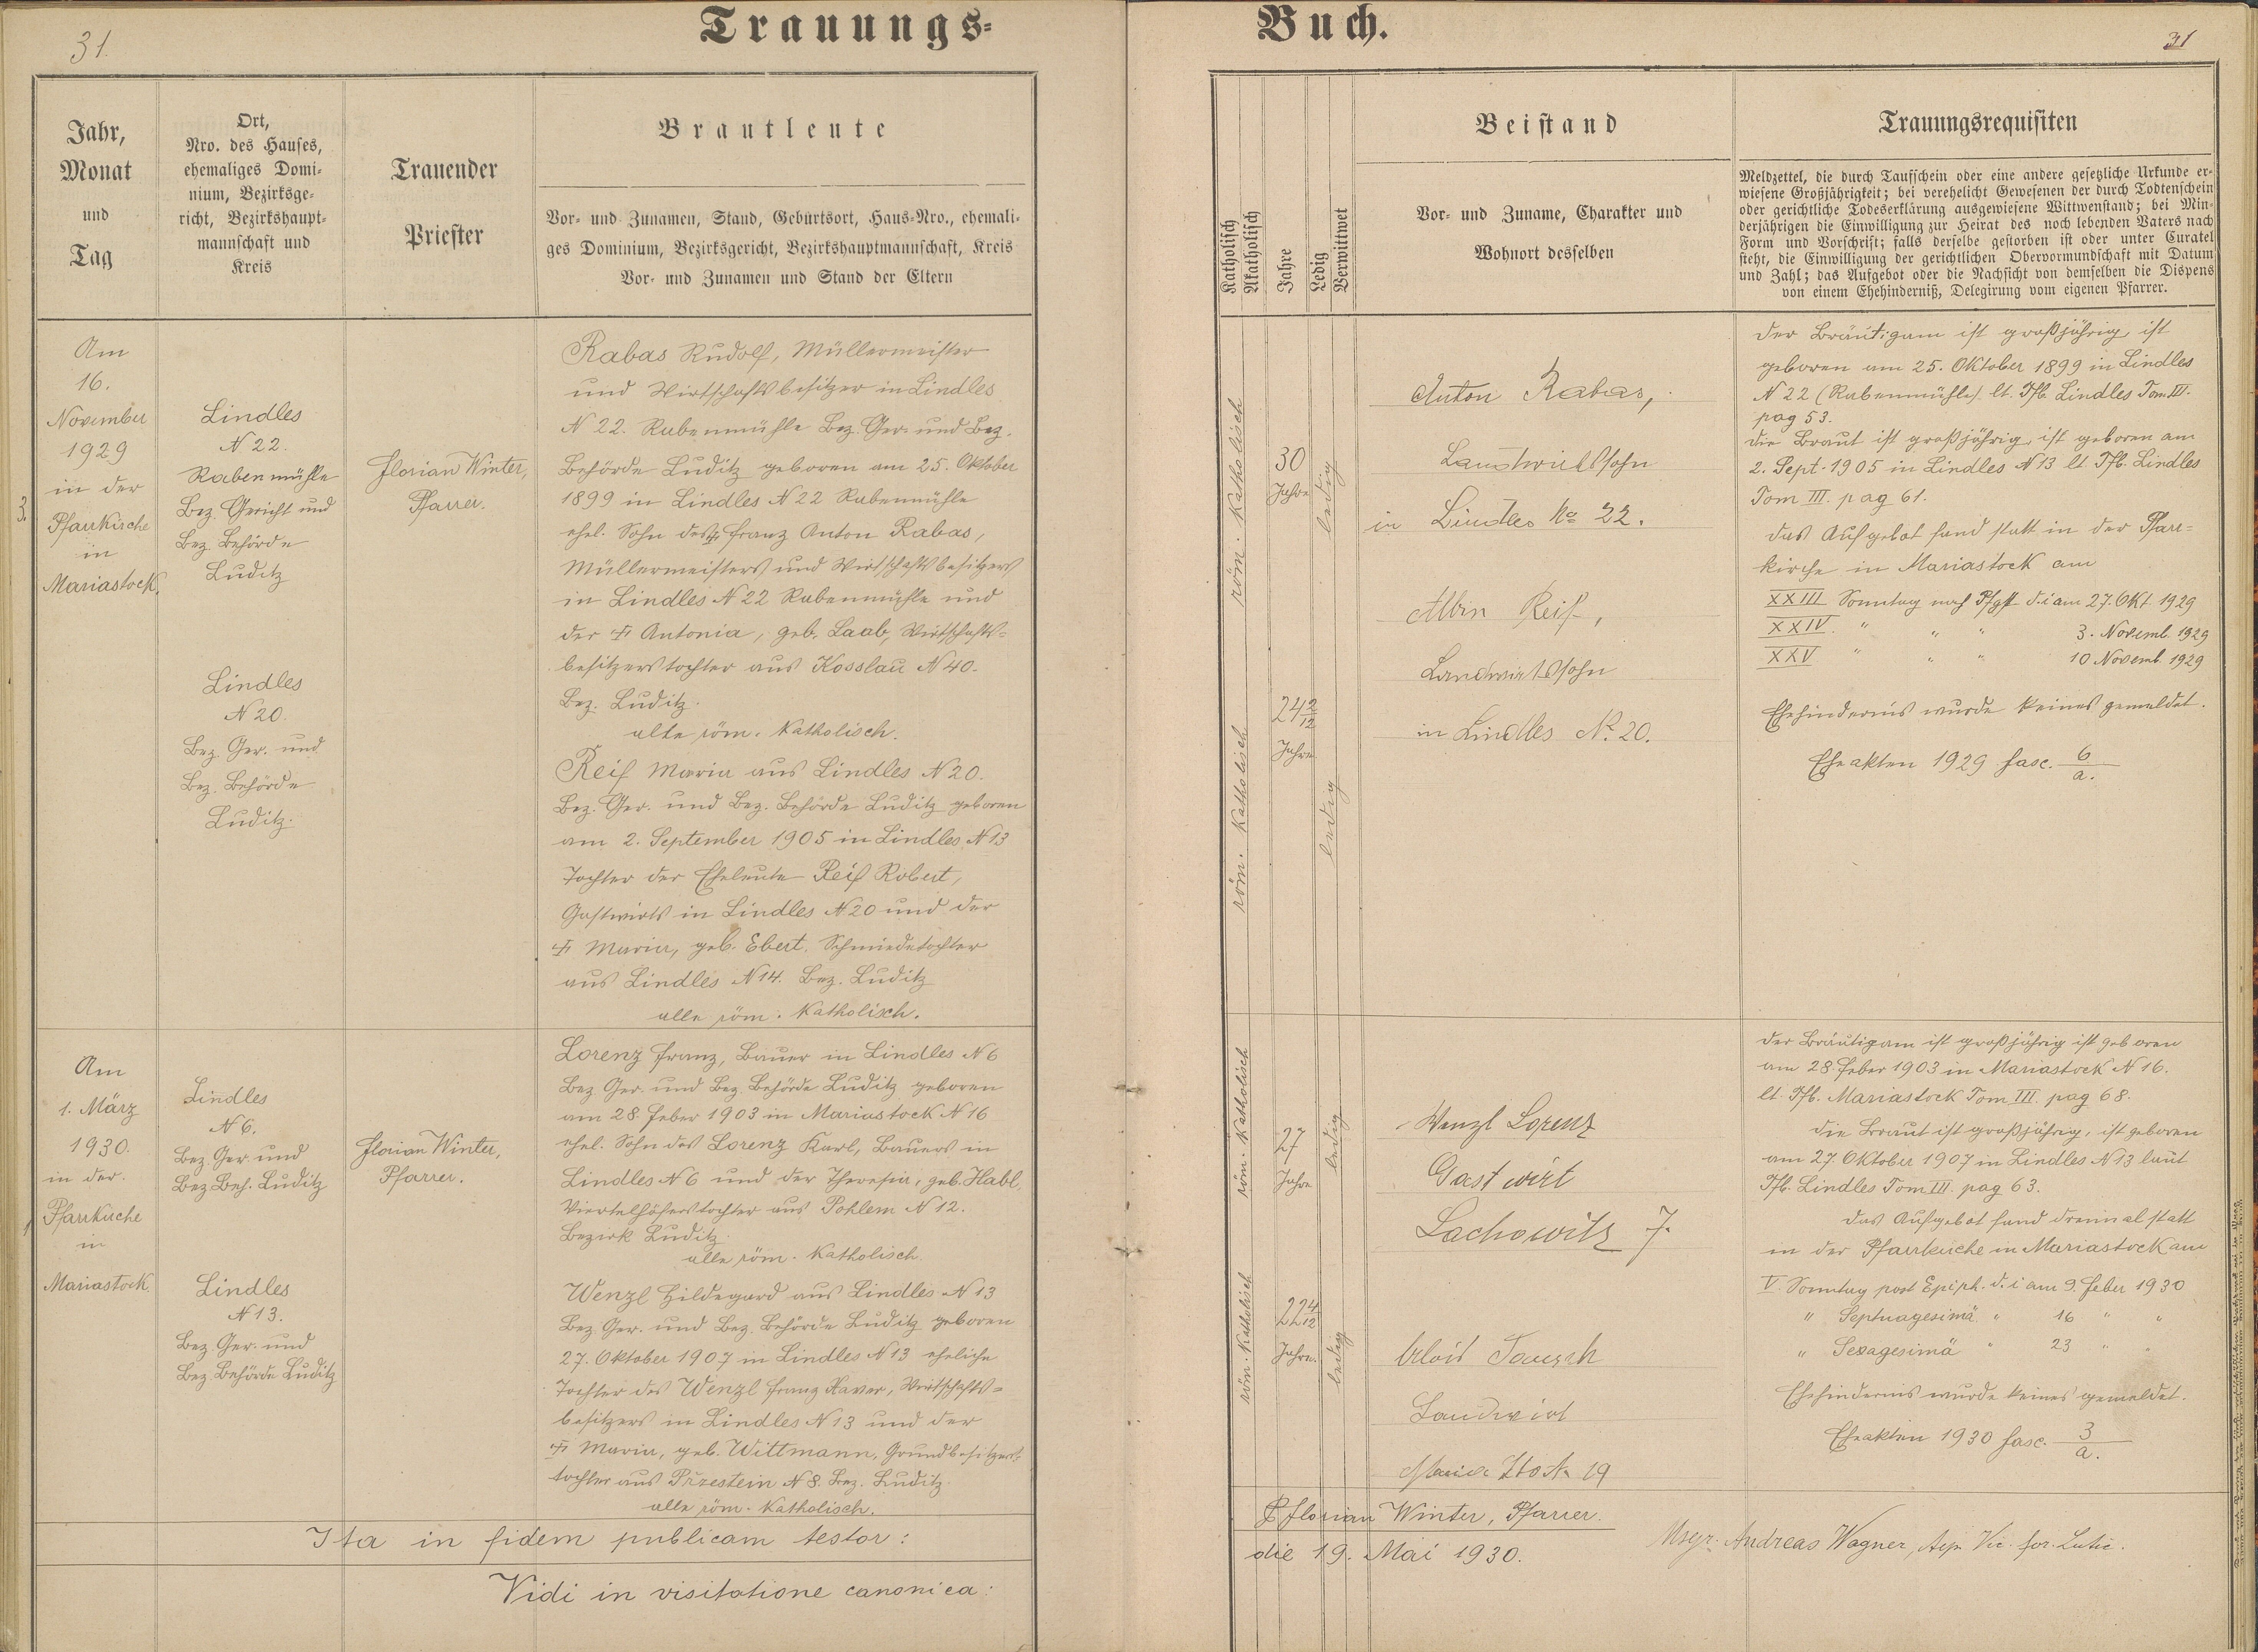 31.
Trauungs-
Jahr,
Monat
und
Tag
Ort,
Nro. des Hauses,
ehemaliges Domi-
nium, Bezirksge-
richt, Bezirkshaupt-
mannschaft und
Kreis
Trauender
Priester
Brautleute
Vor- und Zunamen, Stand, Geburtsort, Haus-Nro., ehemali-
ges Dominium, Bezirksgericht, Bezirkshauptmannschaft, Kreis
Vor- und Zunamen und Stand der Eltern
3.
Am
16.
November
1929
in der
Pfarrkirche
in
Mariastock.
Lindles
N 22.
Rabenmühle
Bez. Gericht und
Bez. Behörde
Luditz
Lindles
N 20.
Bez. Ger. und
Bez. Behörde
Luditz.
Florian Winter,
Pfarrer.
Rabas Rudolf, Müllermeister
und Wirtschaftsbesitzer in Lindles
N 22. Rabenmühle Bez. Ger. und Bez.
Behörde Luditz geboren am 25. Oktober
1899 in Lindles N 22 Rabenmühle
ehel. Sohn des † Franz Anton Rabas,
Müllermeisters und Wirtschaftsbesitzers
in Lindles N 22 Rabenmühle und
der † Antonia, geb. Laab, Wirtschafts-
besitzerstochter aus Kosslau N 40.
Bez. Luditz.
alle röm. Katholisch.
Reif Maria aus Lindles N 20.
Bez. Ger. und Bez. Behörde Luditz geboren
am 2. September 1905 in Lindles N 13
Tochter der Eheleute Reif Robert,
Gastwirts in Lindles N 20 und der
† Maria, geb. Ebert, Schmiedetochter
aus Lindles N 14. Bez. Luditz
alle röm. Katholisch.
1
Am
1. März
1930.
in der
Pfarrkirche
in
Mariastock.
Lindles
N 6.
Bez. Ger. und
Bez. Beh. Luditz
Lindles
N 13.
Bez. Ger. und
Bez. Behörde Luditz
Florian Winter,
Pfarrer.
Lorenz Franz, Bauer in Lindles N 6
Bez. Ger. und Bez. Behörde Luditz geboren
am 28. Feber 1903 in Mariastock N 16
ehel. Sohn des Lorenz Karl, Bauers in
Lindles N 6 und der Theresia, geb. Habl,
Viertelhöferstochter aus Pohlem N 12.
Bezirk Luditz.
alle röm. Katholisch.
Wenzl Hildegard aus Lindles N 13
Bez. Ger. und Bez. Behörde Luditz geboren
27. Oktober 1907 in Lindles N 13 eheliche
Tochter des Wenzl Franz Xaver, Wirtschafts-
besitzers in Lindles N 13 und der
† Maria, geb. Wittmann, Grundbesitzers-
tochter aus Przestein N 8. Bez. Luditz.
alle röm. Katholisch.
Ita in fidem publicam testor:
Vidi in visitatione canonica:
Buch.
31
Katholisch
Akatholisch
Jahre
Ledig
Verwittwet
Beistand
Vor- und Zuname, Charakter und
Wohnort desselben
Trauungsrequisiten
Meldzettel, die durch Taufschein oder eine andere gesetzliche Urkunde er-
wiesene Großjährigkeit; bei verehelicht Gewesenen der durch Todtenschein
oder gerichtliche Todeserklärung ausgewiesene Wittwenstand; bei Min-
derjährigen die Einwilligung zur Heirat des noch lebenden Vaters nach
Form und Vorschrift; falls derselbe gestorben ist oder unter Curatel
steht, die Einwilligung der gerichtlichen Obervormundschaft mit Datum
und Zahl; das Aufgebot oder die Nachsicht von demselben die Dispens
von einem Ehehinderniß, Delegirung vom eigenen Pfarrer.
röm. Katholisch
30
Jahre
ledig
röm. Katholisch
24 2/12
Jahre
ledig
Anton Rabas,
Landwirtssohn
in Lindles No 22.
Albin Reif,
Landwirtssohn
in Lindles No. 20.
der Bräutigam ist großjährig, ist
geboren am 25. Oktober 1899 in Lindles
N 22 (Rabenmühle) lt. Tfb. Lindles Tom III.
pag 53.
die Braut ist großjährig, ist geboren am
2. Sept. 1905 in Lindles N 13 lt. Tfb. Lindles
Tom III. pag 61.
das Aufgebot fand statt in der Pfarr-
kirche in Mariastock am
XXIII Sonntag nach Pfgst d. i am 27. Okt 1929
XXIV. " " " 3. Novemb. 1929
XXV " " " 10 Novemb. 1929
Ehehindernis wurde keines gemeldet.
Eheakten 1929 fasc. 6/a.
röm. Katholisch
27
Jahre
ledig
röm. Katholisch
22 4/12
Jahre.
ledig
Wenzl Lorenz
Gastwirt
Lachowitz 7.
Alois
Landwirt
Maria Stock 19
der Bräutigam ist großjährig ist geboren
am 28. Feber 1903 in Mariastock N 16.
lt. Tfb. Mariastock Tom III. pag 68.
die Braut ist großjährig, ist geboren
am 27. Oktober 1907 in Lindles N 13 laut
Tfb. Lindles Tom III. pag 63.
das Aufgebot fand dreimal statt
in der Pfarrkirche in Mariastock am
V. Sonntag post Epiph. d. i am 9. Feber 1930
" Septuagesimä " 16 " "
" Sexagesimä " 23 " "
Ehehindernis wurde keines gemeldet.
Eheakten 1930 fasc. 3/a.
P. Florian Winter, Pfarrer.
die 19. Mai 1930.
Msgr. Andreas Wagner, Vic. for. Lutic.